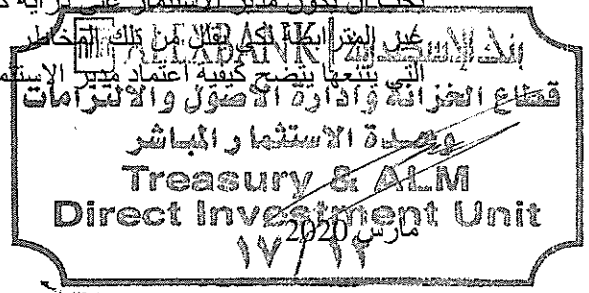 يجب أن يكون مدير الاستثمار على دراية
غير المترابطة لكي يقلل من تلك المخاطر
التي يتبعها يتضح كيفية اعتماد مدير الاستثمار
بنك الإسكندرية ALEXBANK
قطاع الخزانة وإدارة الأصول والالتزامات
وحدة الاستثمار المباشر
Treasury & ALM
Direct Investment Unit
مارس 2020
١٧/١٢